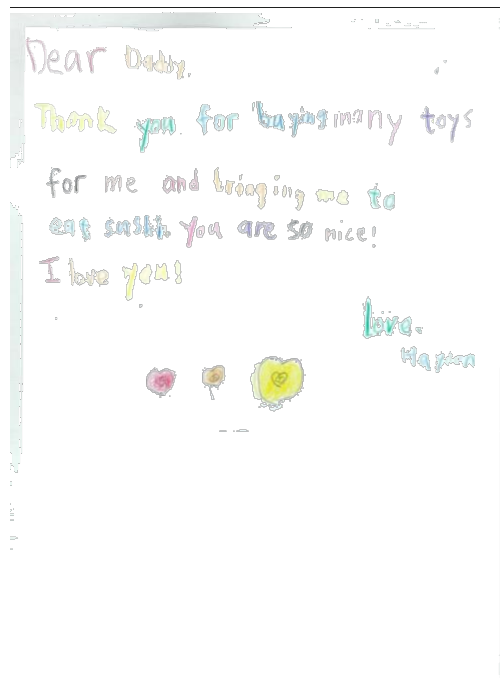 Dear Daddy,
Thank you for buying many toys
for me and bringing me to
eat sushi. You are so nice!
I love you!
Love,